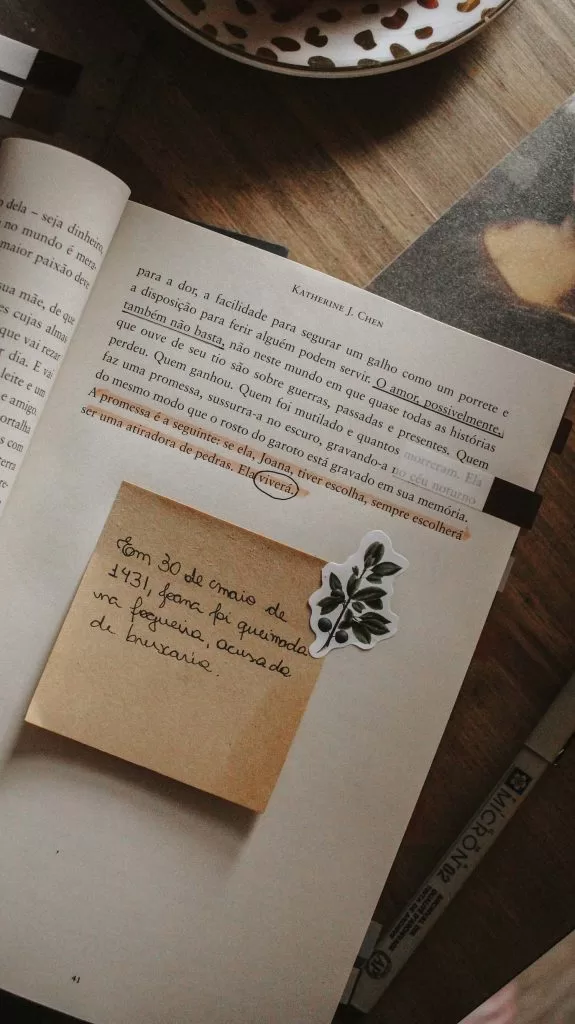 dela – seja dinheiro,
no mundo é mera-
maior paixão deve
sua mãe, de que
es cujas almas
que vai rezar
r dia. E vai
leite e um
e amigo.
ortalha
s com
KATHERINE J. CHEN
para a dor, a facilidade para segurar um galho como um porrete e
a disposição para ferir alguém podem servir. O amor, possivelmente,
também não basta, não neste mundo em que quase todas as histórias
que ouve de seu tio são sobre guerras, passadas e presentes. Quem
perdeu. Quem ganhou. Quem foi mutilado e quantos morreram. Ela
faz uma promessa, sussurra-a no escuro, gravando-a no céu noturno
do mesmo modo que o rosto do garoto está gravado em sua memória.
A promessa é a seguinte: se ela, Joana, tiver escolha, sempre escolherá
ser uma atiradora de pedras. Ela viverá.
Em 30 de maio de
1431, Joana foi queimada
na fogueira, acusada
de bruxaria.
41
MICRON 02